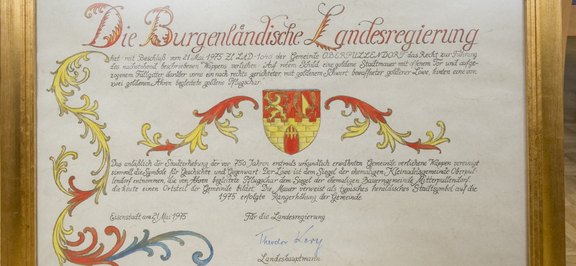 Die Burgenländische Landesregierung
hat mit Beschluß vom 21. Mai 1975 Zl. LAD-1010 der Gemeinde OBERPULLENDORF das Recht zur Führung
des nachstehend beschriebenen Wappens verliehen: Auf rotem Schild eine goldene Stadtmauer mit offenem Tor und aufge-
zogenem Fallgitter, darüber vorne ein nach rechts gerichteter, mit goldenem Schwert bewaffneter goldener Löwe, hinten eine von
zwei goldenen Ähren begleitete goldene Pflugschar.
Das anläßlich der Stadterhebung der vor 750 Jahren erstmals urkundlich erwähnten Gemeinde verliehene Wappen vereinigt
sinnvoll die Symbole für Geschichte und Gegenwart. Der Löwe ist dem Siegel der ehemaligen Kleinadelsgemeinde Oberpul-
lendorf entnommen, die von Ähren begleitete Pflugschar dem Siegel der ehemaligen Bauerngemeinde Mitterpullendorf,
die heute einen Ortsteil der Gemeinde bildet. Die Mauer verweist als typisches heraldisches Stadtsymbol auf die
1975 erfolgte Rangerhöhung der Gemeinde.
Eisenstadt, am 21. Mai 1975 Für die Landesregierung
Theodor Kery
Landeshauptmann